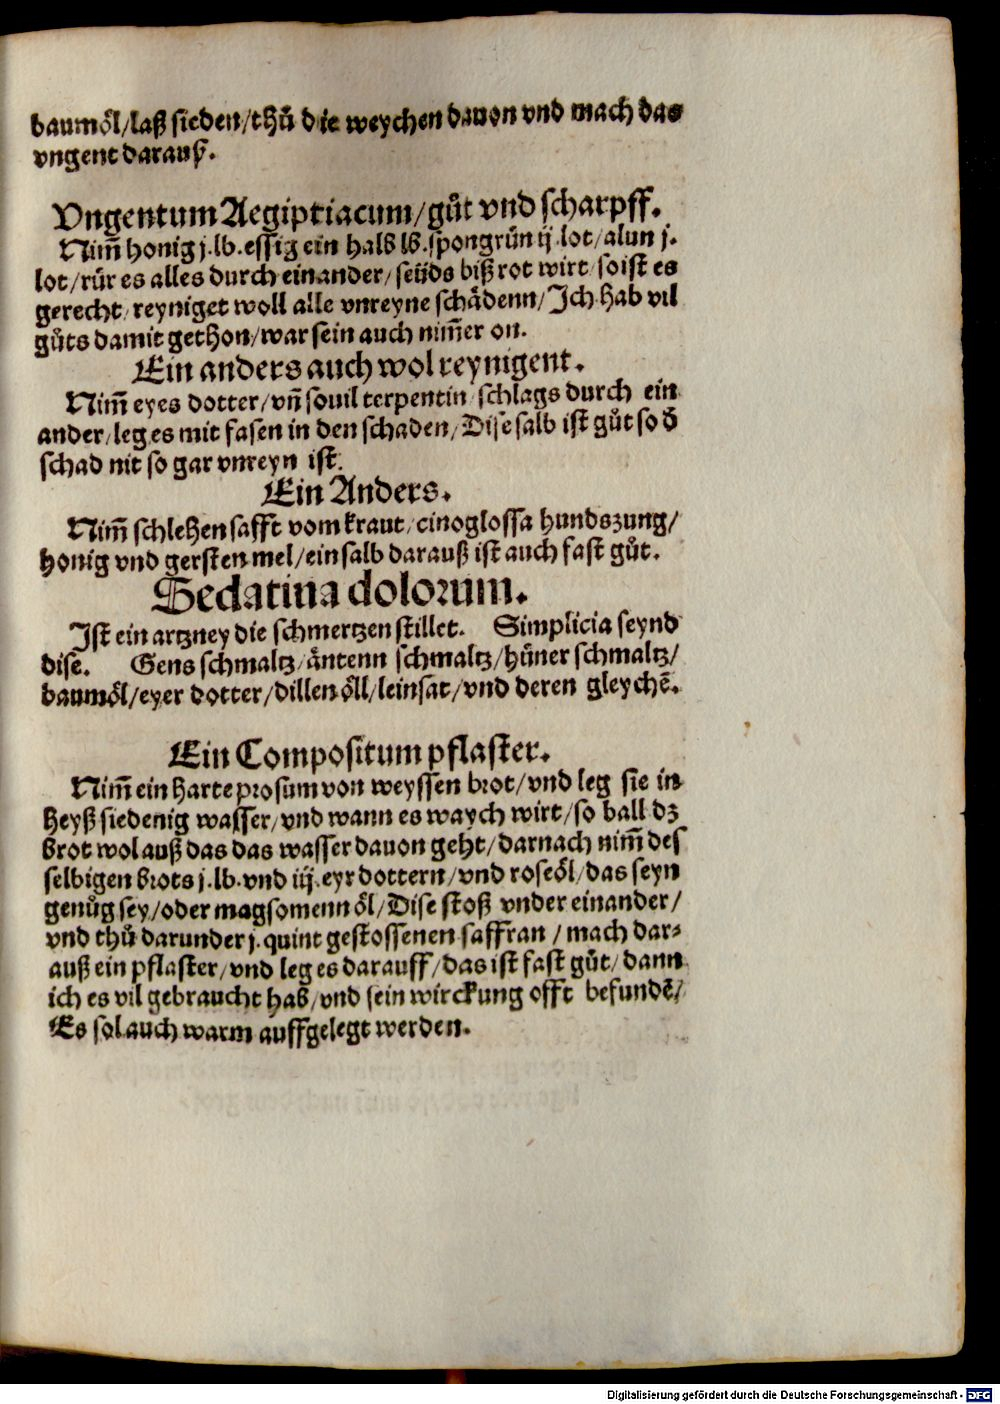 baumöl/laß sieden/thů die weychen dauon vnd mach das
vngent darauß.
Vngentum Aegiptiacum/gůt vnd scharpff.
Nim̃ honig j.lb.essig ein halb lb.spongrün ij.lot/alun j.
lot/rür es alles durch einander/seüds biß rot wirt/so ist es
gerecht/reyniget woll alle vnreyne schädenn/Ich hab vil
gůts damit gethon/war sein auch nim̃er on.
Ein anders auch wol reynigent.
Nim̃ eyes dotter/vñ souil terpentin/schlags durch ein
ander/leg es mit fasen in den schaden/Dise salb ist gůt so ð
schad nit so gar vnreyn ist.
Ein Anders.
Nim̃ schlehensafft vom kraut/cinoglossa hundszung/
honig vnd gersten mel/ein salb darauß ist auch fast gůt.
Sedatiua doloꝛum.
Ist ein artzney die schmertzen stillet. Simplicia seynd
dise. Gens schmaltz/äntenn schmaltz/hüner schmaltz/
baumöl/eyer dotter/dillen öll/leinsat/vnd deren gleychẽ.
Ein Compositum pflaster.
Nim̃ ein harte pꝛosum von weyssen bꝛot/vnd leg sie in
heyß siedenig wasser/vnd wann es waych wirt/so ball dz
bꝛot wol auß das das wasser dauon geht/darnach nim̃ des
selbigen bꝛots j.lb.vnd iij.eyr dottern/vnd roseöl/das seyn
genůg sey/oder magsomenn öl/Dise stoß vnder einander/
vnd thů darunder j.quint gestossenen saffran/mach dar⸗
auß ein pflaster/vnd leg es darauff/das ist fast gůt/dann
ich es vil gebraucht hab/vnd sein wirckung offt befundẽ/
Es sol auch warm auffgelegt werden.
Digitalisierung gefördert durch die Deutsche Forschungsgemeinschaft - DFG